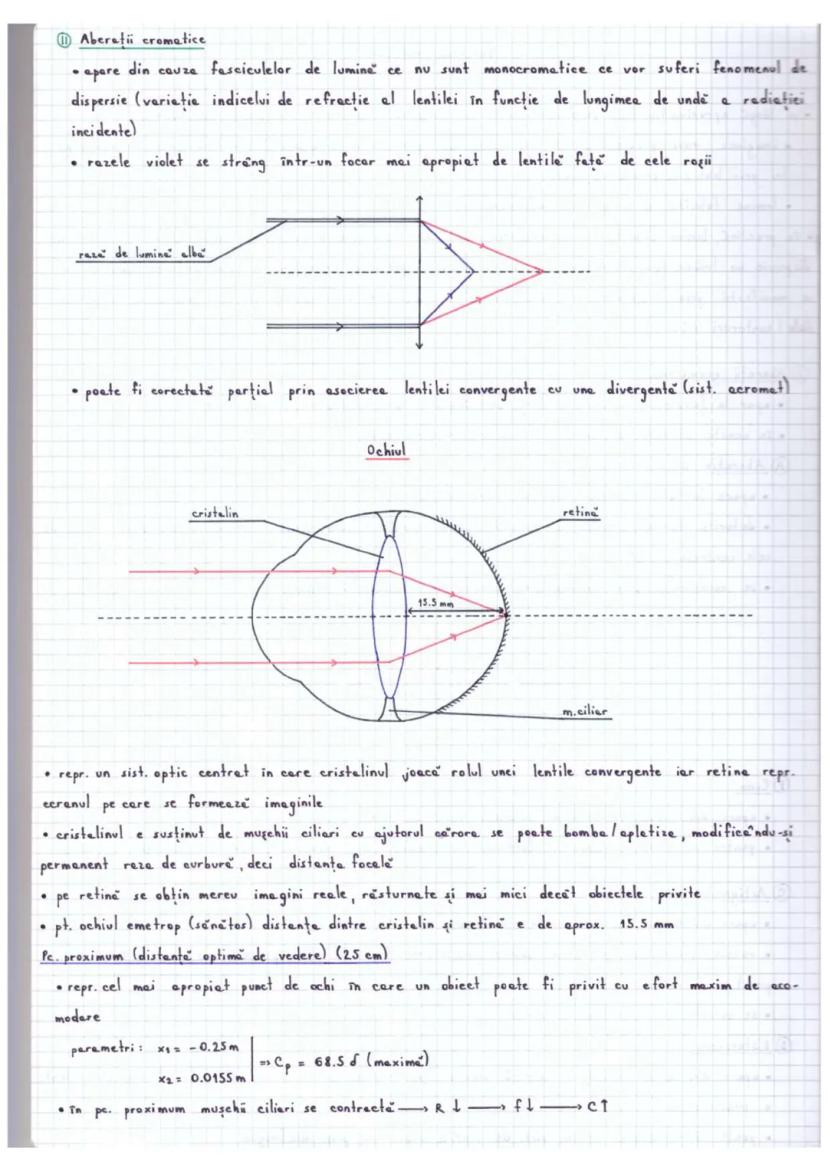 ⑪ Aberații cromatice
• apare din cauza fasciculelor de lumină ce nu sunt monocromatice ce vor suferi fenomenul de
dispersie (variația indicelui de refracție al lentilei în funcție de lungimea de undă a radiației
incidente)
• razele violet se strâng într-un focar mai apropiat de lentilă față de cele roșii
rază de lumină albă
• poate fi corectată parțial prin asocierea lentilei convergente cu una divergentă (sist. acromat)
Ochiul
cristalin
retină
15.5 mm
m. ciliar
• repr. un sist. optic centrat în care cristalinul joacă rolul unei lentile convergente iar retina repr.
ecranul pe care se formează imaginile
• cristalinul e susținut de mușchii ciliari cu ajutorul cărora se poate bomba/aplatiza, modificându-și
permanent raza de curbură, deci distanța focală
• pe retină se obțin mereu imagini reale, răsturnate și mai mici decât obiectele privite
• pt. ochiul emetrop (sănătos) distanța dintre cristalin și retină e de aprox. 15.5 mm
Pc. proximum (distanță optimă de vedere) (25 cm)
• repr. cel mai apropiat punct de ochi în care un obiect poate fi privit cu efort maxim de aco-
modare
parametri: x₁ = -0.25 m
x₂ = 0.0155 m
=> Cₚ = 68.5 δ (maximă)
• în pc. proximum mușchii ciliari se contractă → R ↓ → f ↓ → C ↑